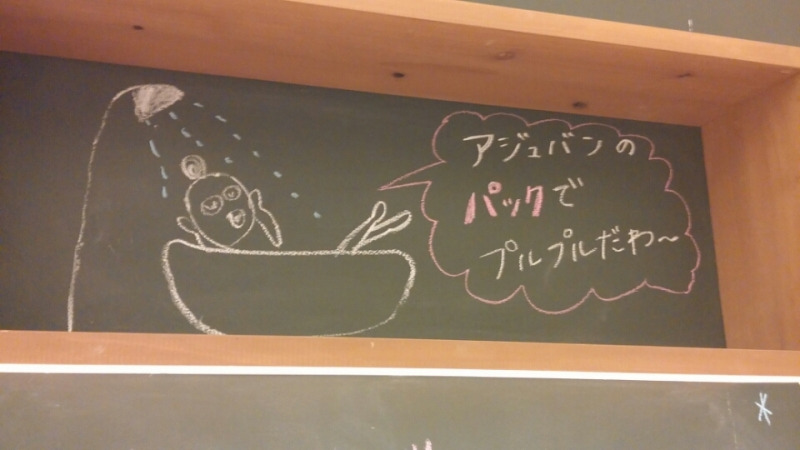 アジュバンの
パックで
プルプルだわ〜